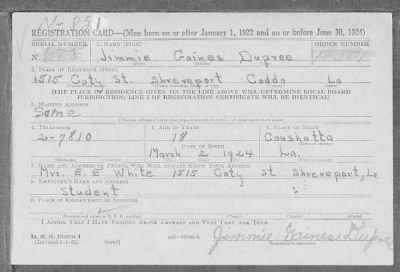 N-851
REGISTRATION CARD—(Men born on or after January 1, 1922 and on or before June 30, 1924)
SERIAL NUMBER 1. NAME (Print) ORDER NUMBER
N Jimmie Gaines Dupree
2. PLACE OF RESIDENCE (Print)
1515 Coty St. Shreveport Caddo La
[THE PLACE OF RESIDENCE GIVEN ON THE LINE ABOVE WILL DETERMINE LOCAL BOARD
JURISDICTION; LINE 2 OF REGISTRATION CERTIFICATE WILL BE IDENTICAL]
3. MAILING ADDRESS
Same
4. TELEPHONE 5. AGE IN YEARS 6. PLACE OF BIRTH
2-7810 18 Coushatta
DATE OF BIRTH
March 2 1924 La.
7. NAME AND ADDRESS OF PERSON WHO WILL ALWAYS KNOW YOUR ADDRESS
Mrs. E. E. White 1515 Coty St Shreveport, La
8. EMPLOYER'S NAME AND ADDRESS
Student
9. PLACE OF EMPLOYMENT OR BUSINESS
I AFFIRM THAT I HAVE VERIFIED ABOVE ANSWERS AND THAT THEY ARE TRUE.
D. S. S. Form 1
(Revised (over) Jimmie Gaines Dupree